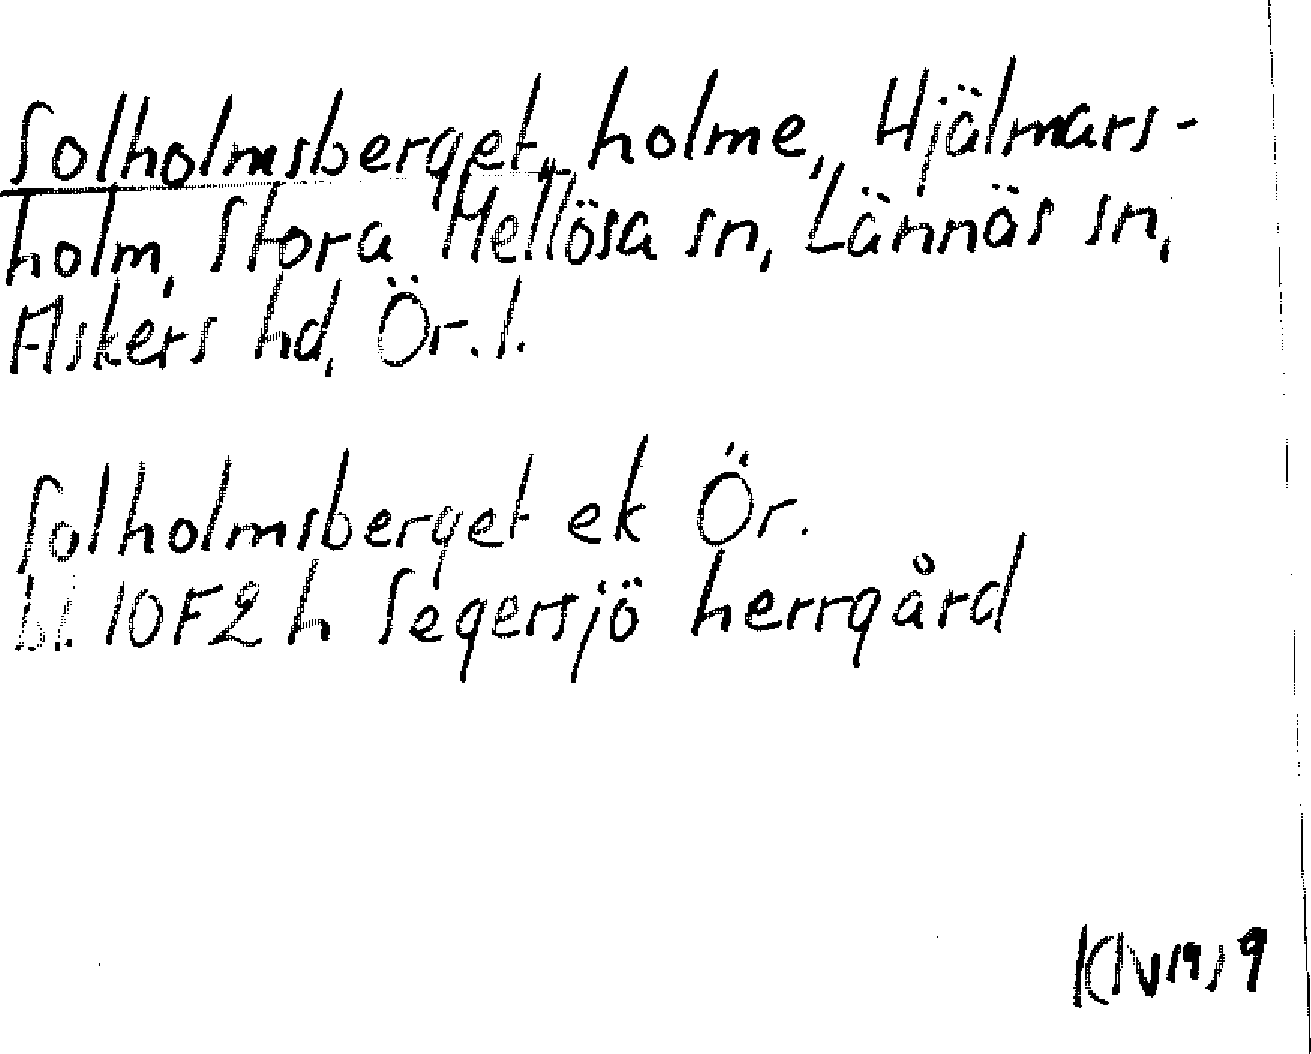 Solholmsberget, holme, Hjälmars-
holm, Stora Mellösa sn, Lännäs sn,
Askers hd, Ör. l.
Solholmsberget ek Ör.
bl. 10F2h Segersjö herrgård